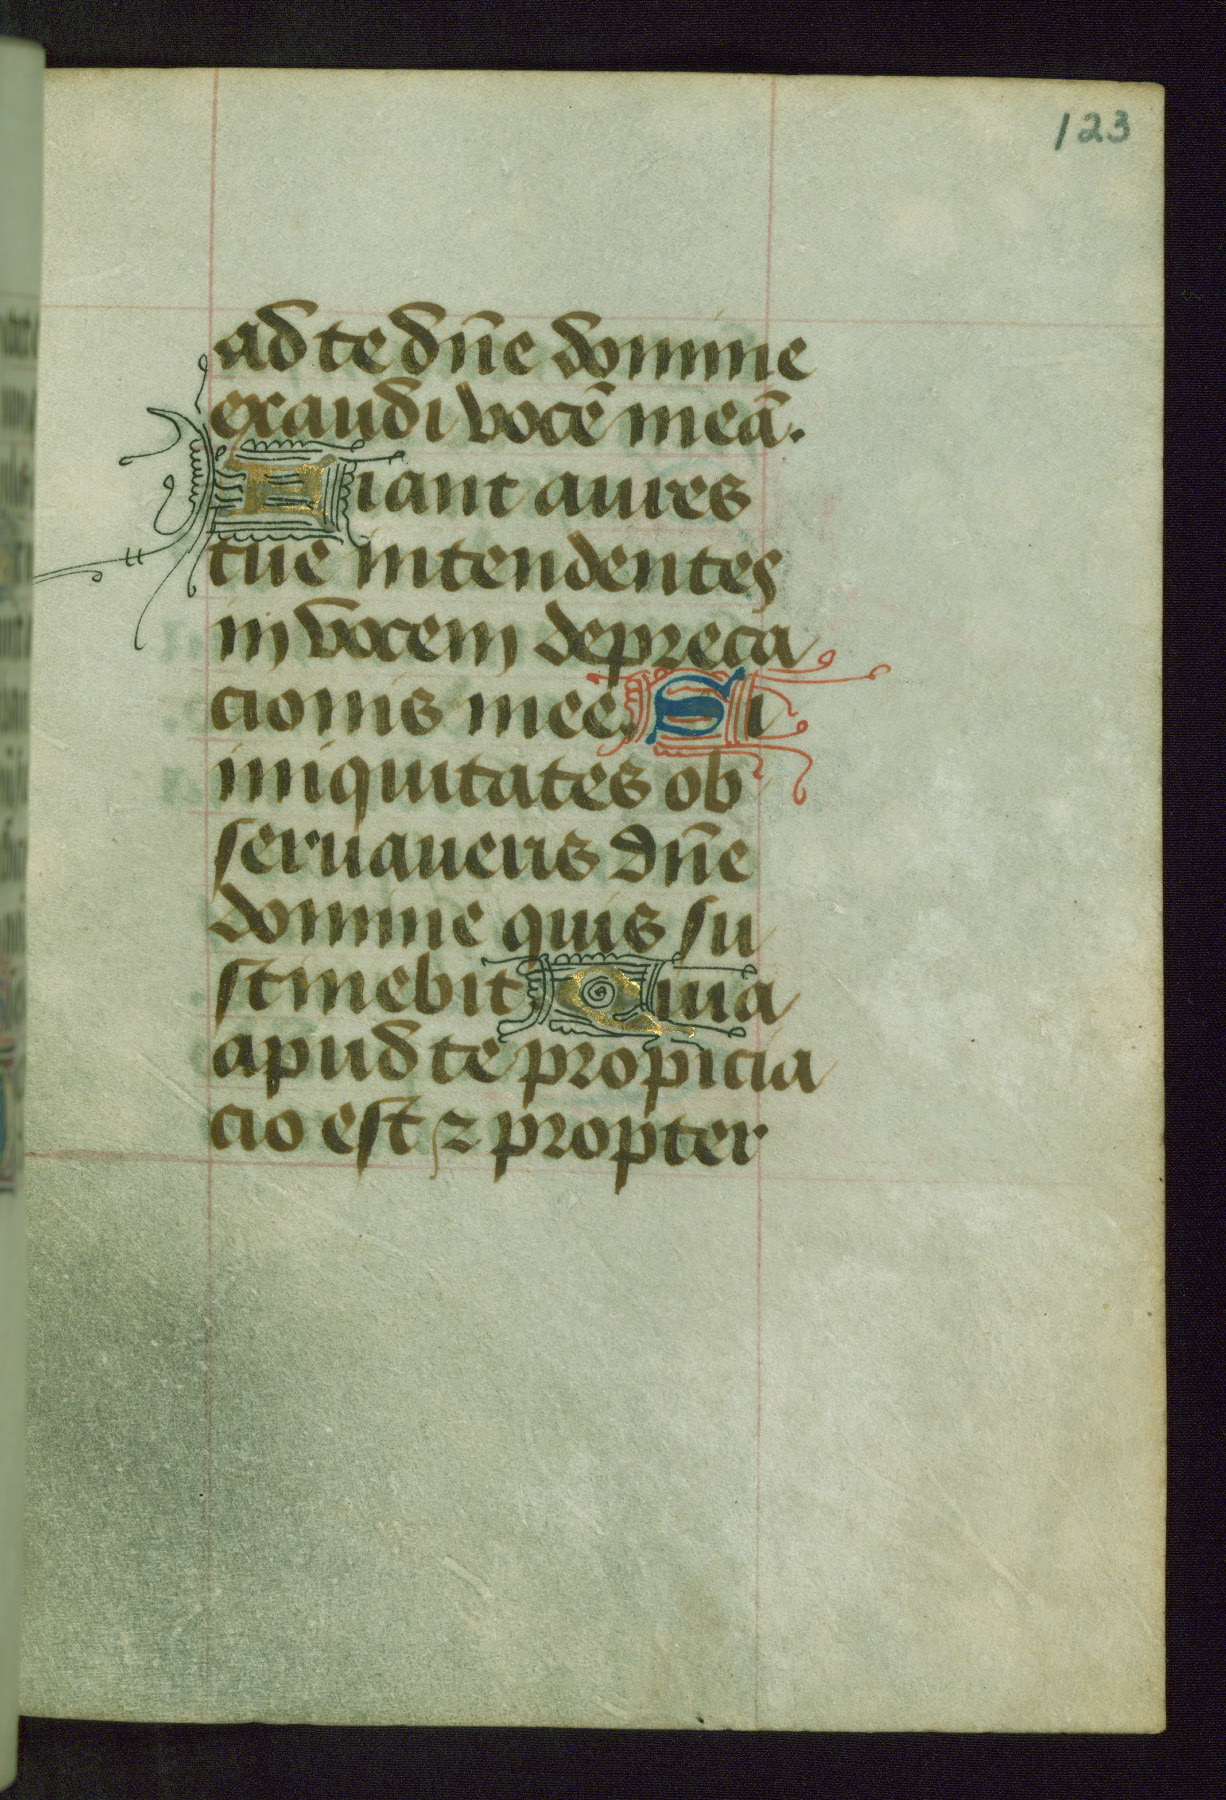 123
ad te dn̄e domine
exaudi vocē meā.
Fiant aures
tue intendentes
in vocem depreca
cionis mee. Si
iniquitates ob
seruaueris dn̄e
domine quis su
stinebit. Quia
apud te propicia
cio est ⁊ propter